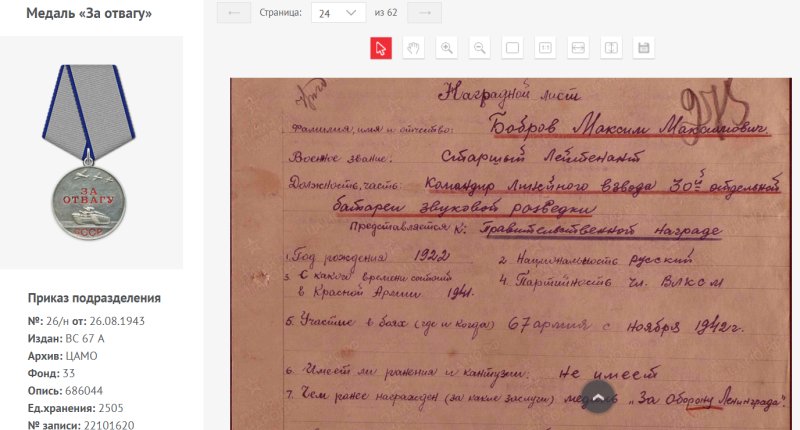 Медаль «За отвагу»
Страница: 24 из 62
ЗА
ОТВАГУ
СССР
Приказ подразделения
№: 26/н от: 26.08.1943
Издан: ВС 67 А
Архив: ЦАМО
Фонд: 33
Опись: 686044
Ед.хранения: 2505
№ записи: 22101620
1:1
Наградной лист
Фамилия, имя и отчество: Бобров Максим Максимович
Военное звание: Старший Лейтенант
Должность, часть: Командир линейного взвода 30й отдельной
батареи звуковой разведки
Представляется к: Правительственной награде
1. Год рождения 1922 2. Национальность русский
3. С какого времени состоит 4. Партийность чл. ВЛКСМ
в Красной Армии 1941.
5. Участие в боях (где и когда) 67 армия с ноября 1942 г.
6. Имеет ли ранения и контузии: не имеет
7. Чем ранее награжден (за какие заслуги) медаль "За Оборону Ленинграда".